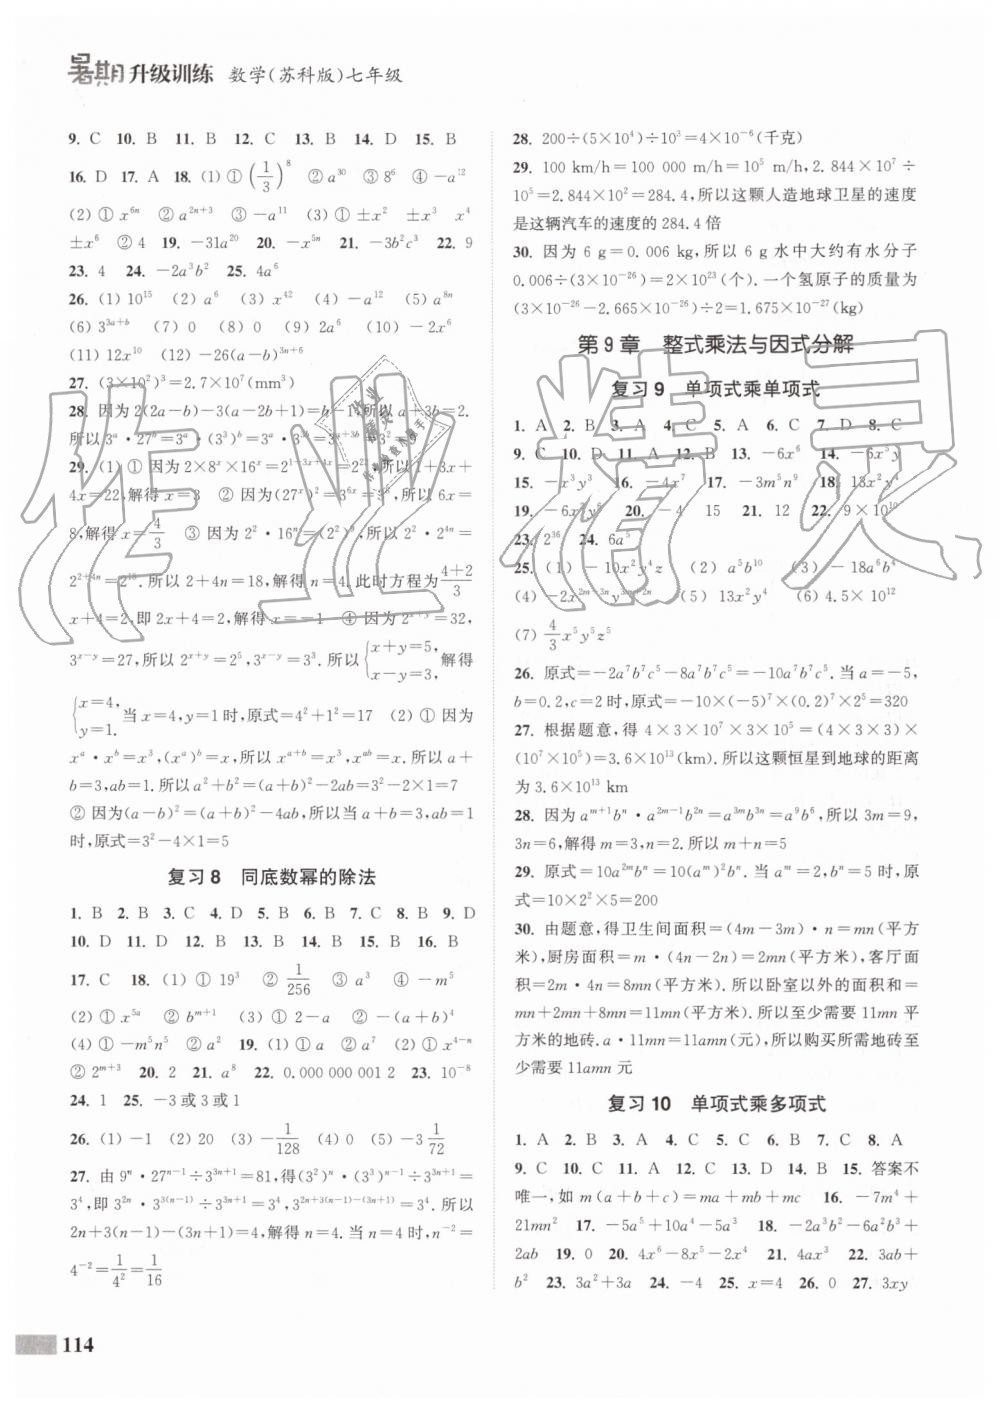 暑期升级训练 数学(苏科版)七年级
9. C 10. B 11. B 12. C 13. B 14. D 15. B
16. D 17. A 18. (1) ① (1/3)⁸ ② a³⁰ ③ 8⁶ ④ −a¹²
(2) ① x⁶ⁿ ② a²ⁿ⁺³ ③ −a¹¹ (3) ① ±x² ±x³ x⁴
±x⁶ ② 4 19. −31a²⁰ 20. −x⁵ⁿ 21. −3b²c³ 22. 9
23. 4 24. −2a³b² 25. 4a⁶
26. (1) 10¹⁵ (2) a⁶ (3) x⁴² (4) −a¹² (5) a⁸ⁿ
(6) 3³ᵃ⁺ᵇ (7) 0 (8) 0 (9) x⁶ (10) −2x⁶
(11) 12x¹⁰ (12) −26(a−b)³ⁿ⁺⁶
27. (3×10²)³=2.7×10⁷(mm³)
28. 因为 2(2a−b)−3(a−2b+1)=b−1,所以 a+3b=2.
所以 3ᵃ·27ᵇ=3ᵃ·(3³)ᵇ=3ᵃ·3³ᵇ=3ᵃ⁺³ᵇ=3²=9
29. (1) ① 因为 2×8ˣ×16ˣ=2¹⁺³ˣ⁺⁴ˣ=2²²,所以 1+3x+
4x=22,解得 x=3 ② 因为(27ˣ)²=3⁶ˣ=3⁸,所以 6x=
8,解得 x=4/3 ③ 因为 2²·16ⁿ=(2²)⁹,所以 2²·2⁴ⁿ=
2²⁺⁴ⁿ=2¹⁸.所以 2+4n=18,解得 n=4.此时方程为(4+2)/3
x+4=2,即 2x+4=2,解得 x=−1 ④ 因为 2ˣ⁺ʸ=32,
3ˣ⁻ʸ=27,所以 2ˣ⁺ʸ=2⁵,3ˣ⁻ʸ=3³.所以{x+y=5, x−y=3.解得
{x=4, y=1.当 x=4,y=1 时,原式=4²+1²=17 (2) ① 因为
xᵃ·xᵇ=x³,(xᵃ)ᵇ=x,所以 xᵃ⁺ᵇ=x³,xᵃᵇ=x.所以 a+
b=3,ab=1.所以 a²+b²=(a+b)²−2ab=3²−2×1=7
② 因为(a−b)²=(a+b)²−4ab,所以当 a+b=3,ab=1
时,原式=3²−4×1=5
复习 8 同底数幂的除法
1. B 2. B 3. C 4. D 5. B 6. B 7. C 8. B 9. D
10. D 11. D 12. B 13. B 14. B 15. B 16. B
17. C 18. (1) ① 19³ ② 1/256 ③ a³ ④ −m⁵
(2) ① x⁵ᵃ ② bᵐ⁺¹ (3) ① 2−a ② −(a+b)⁴
(4) ① −m⁵n⁵ ② a² 19. (1) ① a ② a⁷ (2) ① x⁴⁻ⁿ
② 2ᵐ⁺³ 20. 2 21. a⁸ 22. 0.000 000 001 2 23. 10⁻⁸
24. 1 25. −3 或 3 或 1
26. (1) −1 (2) 20 (3) −1/128 (4) 0 (5) −3 1/72
27. 由 9ⁿ·27ⁿ⁻¹÷3³ⁿ⁺¹=81,得(3²)ⁿ·(3³)ⁿ⁻¹÷3³ⁿ⁺¹=
3⁴,即 3²ⁿ·3³⁽ⁿ⁻¹⁾÷3³ⁿ⁺¹=3⁴,3²ⁿ⁺³⁽ⁿ⁻¹⁾⁻⁽³ⁿ⁺¹⁾=3⁴.所以
2n+3(n−1)−(3n+1)=4,解得 n=4.当 n=4 时,n⁻²=
4⁻²=1/4²=1/16
28. 200÷(5×10⁴)÷10³=4×10⁻⁶(千克)
29. 100 km/h=100 000 m/h=10⁵ m/h,2.844×10⁷÷
10⁵=2.844×10²=284.4,所以这颗人造地球卫星的速度
是这辆汽车的速度的 284.4 倍
30. 因为 6 g=0.006 kg,所以 6 g 水中大约有水分子
0.006÷(3×10⁻²⁶)=2×10²³(个).一个氢原子的质量为
(3×10⁻²⁶−2.665×10⁻²⁶)÷2=1.675×10⁻²⁷(kg)
第 9 章 整式乘法与因式分解
复习 9 单项式乘单项式
1. A 2. B 3. A 4. C 5. A 6. C 7. D 8. C
9. C 10. D 11. A 12. B 13. −6x⁶ 14. −6x³y
15. −x³y³ 16. −4x⁷ 17. −3m⁵n⁹ 18. 13x²y⁴
19. −6x³y³ 20. −4 15 21. 12 22. 9×10¹⁰
23. 2³⁶ 24. 6a⁵
25. (1) −10x²y⁴z (2) a⁵b¹⁰ (3) −18a⁶b⁴
(4) −2x²ᵐ⁺³ⁿy³ᵐ⁺²ⁿ (5) 13x²y⁴ (6) 4.5×10¹²
(7) 4/3 x⁵y⁵z⁵
26. 原式=−2a⁷b⁷c⁵−8a⁷b⁷c⁵=−10a⁷b⁷c⁵.当 a=−5,
b=0.2,c=2 时,原式=−10×(−5)⁷×(0.2)⁷×2⁵=320
27. 根据题意,得 4×3×10⁷×3×10⁵=(4×3×3)×
(10⁷×10⁵)=3.6×10¹³(km).所以这颗恒星到地球的距离
为 3.6×10¹³ km
28. 因为 aᵐ⁺¹bⁿ·a²ᵐ⁻¹b²ⁿ=a³ᵐb³ⁿ=a⁹b⁶,所以 3m=9,
3n=6,解得 m=3,n=2.所以 m+n=5
29. 原式=10a²ᵐbⁿ=10(aᵐ)²bⁿ.当 aᵐ=2,bⁿ=5 时,原
式=10×2²×5=200
30. 由题意,得卫生间面积=(4m−3m)·n=mn(平方
米),厨房面积=m·(4n−2n)=2mn(平方米),客厅面
积=2m·4n=8mn(平方米).所以卧室以外的面积和=
mn+2mn+8mn=11mn(平方米).所以至少需要 11mn 平
方米的地砖.a·11mn=11amn(元),所以购买所需地砖至
少需要 11amn 元
复习 10 单项式乘多项式
1. A 2. B 3. A 4. C 5. C 6. B 7. C 8. A
9. C 10. C 11. D 12. C 13. B 14. B 15. 答案不
唯一,如 m(a+b+c)=ma+mb+mc 16. −7m⁴+
21mn² 17. −5a⁵+10a⁴−5a³ 18. −2a³b²−6a²b³+
2ab 19. 0 20. 4x⁶−8x⁵−2x⁴ 21. 4ax³ 22. 3ab+
b² 23. 3a²+3a 24. −4 25. x=4 26. 0 27. 3xy
114
作业精灵